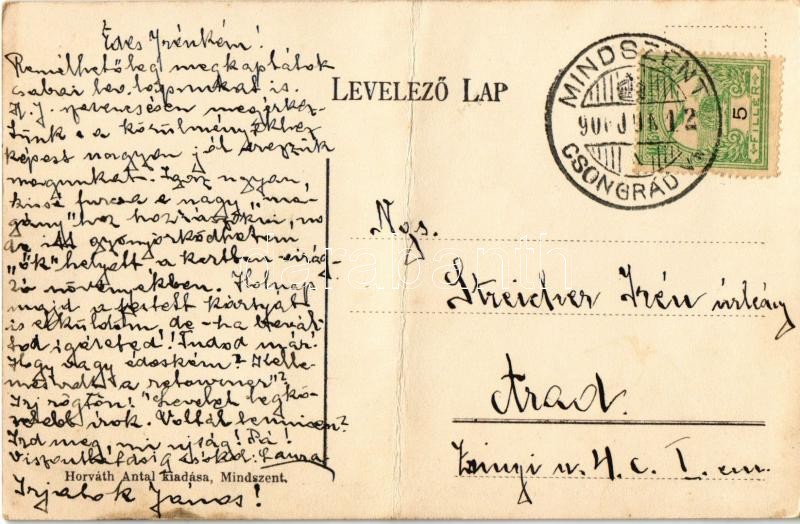 Édes Irénkém!
Remélhetőleg megkaptátok
csabai lev. lapunkat is.
szerencsésen megérkez-
tünk s a körülményekhez
képest nagyon jól érezzük
magunkat. Igaz ugyan,
kissé furcsa a nagy "ma-
gány"hoz hozzászokni, no
de itt gyönyörködhetem
"ők" helyett a kertben virág-
zó növényekben. Holnap
majd a festett kártyát
is elküldöm, de - ha bevál-
tod igéreted! Tudod már!
Hogy vagy édeském? Kelle-
mes volt a
Irj rögtön! Levelet legkö-
zelebb irok. Voltál
Ird meg, mi ujság! Pá!
Viszontlátásig csókol: Laura
Horváth Antal kiadása, Mindszent.
Irjatok János!
LEVELEZŐ LAP
MINDSZENT
CSONGRÁD VM
5
FILLÉR
Ngs.
Streicher Irén úrleány
Arad.
Zrinyi u. 4. c. I. em.
darabanth